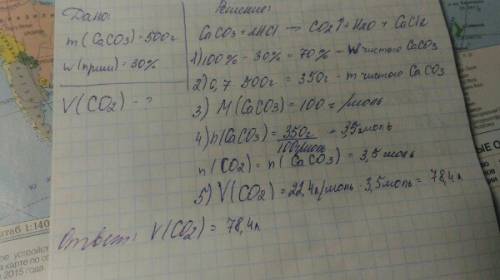 Дано:
m(CaCO3) = 500г
w(прим) = 30%
V(CO2) - ?
Решение:
CaCO3 + 2HCl → CO2↑ + H2O + CaCl2
1) 100% - 30% = 70% - w чистого CaCO3
2) 0,7 · 500г = 350г - m чистого CaCO3
3) M(CaCO3) = 100г/моль
4) n(CaCO3) = 350г / 100г/моль = 3,5 моль
n(CO2) = n(CaCO3) = 3,5 моль
5) V(CO2) = 22,4л/моль · 3,5моль = 78,4л
Ответ: V(CO2) = 78,4л
штаб 1:140
ые устройст
а карте по со
2015 года.